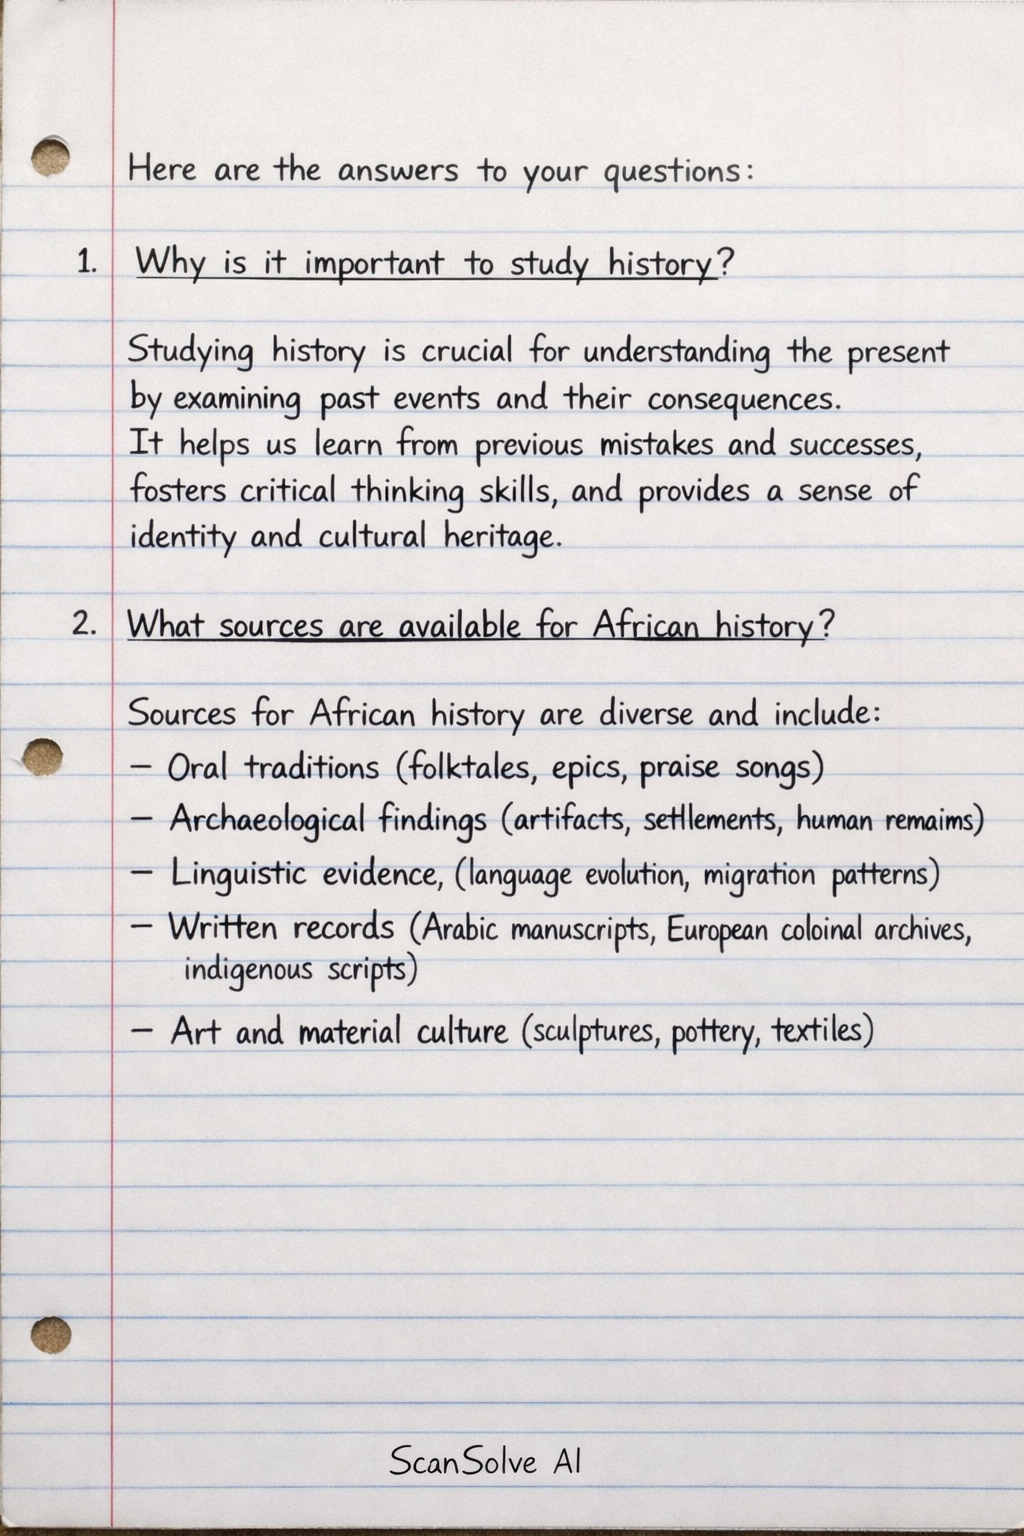 Here are the answers to your questions:
1. Why is it important to study history?
Studying history is crucial for understanding the present
by examining past events and their consequences.
It helps us learn from previous mistakes and successes,
fosters critical thinking skills, and provides a sense of
identity and cultural heritage.
2. What sources are available for African history?
Sources for African history are diverse and include:
— Oral traditions (folktales, epics, praise songs)
— Archaeological findings (artifacts, settlements, human remaims)
— Linguistic evidence, (language evolution, migration patterns)
— Written records (Arabic manuscripts, European coloinal archives,
indigenous scripts)
— Art and material culture (sculptures, pottery, textiles)
ScanSolve AI